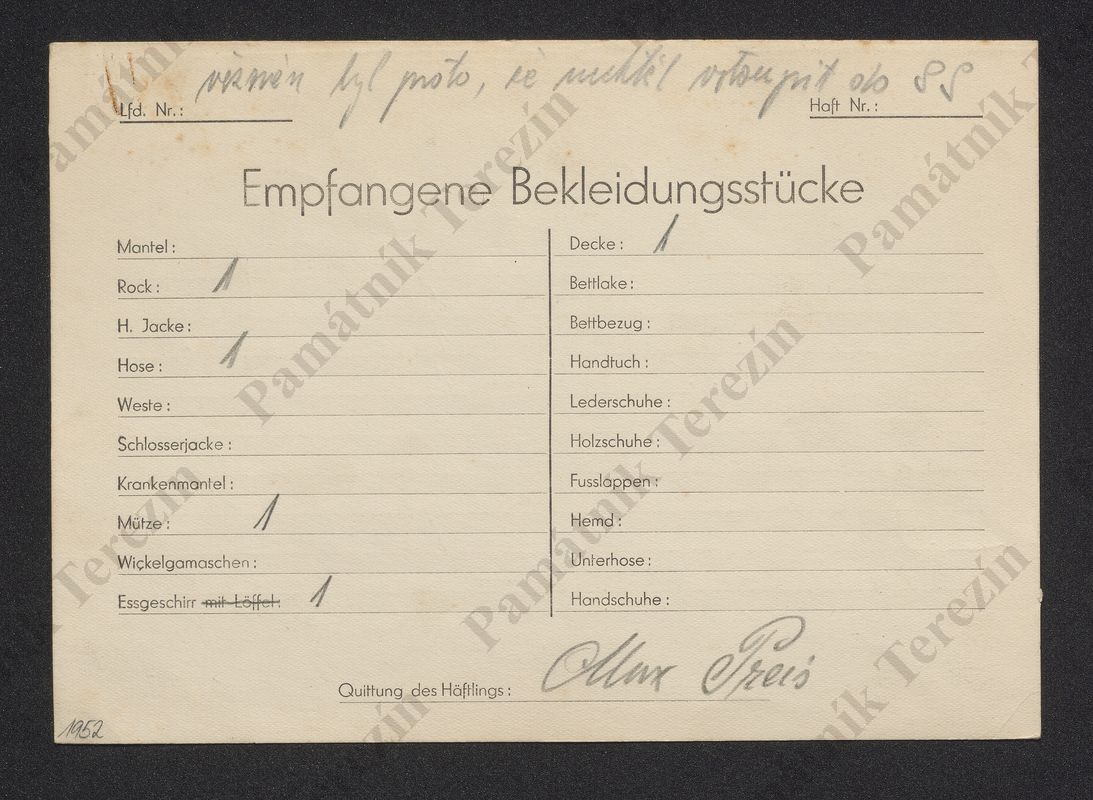 vězněn byl proto, že nechtěl vstoupit do SS
Lfd. Nr.:
Haft Nr.:
Empfangene Bekleidungsstücke
Mantel:
Rock: 1
H. Jacke:
Hose: 1
Weste:
Schlosserjacke:
Krankenmantel:
Mütze: 1
Wickelgamaschen:
Essgeschirr mit Löffel: 1
Decke: 1
Bettlake:
Bettbezug:
Handtuch:
Lederschuhe:
Holzschuhe:
Fusslappen:
Hemd:
Unterhose:
Handschuhe:
Quittung des Häftlings: Max Preis
1952
Památník Terezín